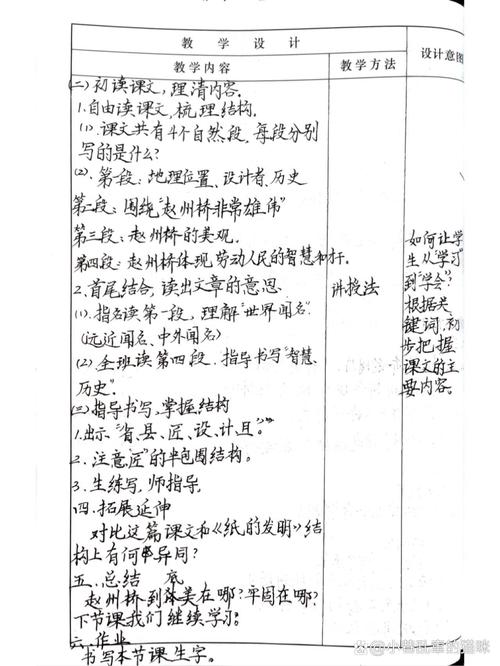 教 学 设 计
设计意图
教学内容
教学方法
(二)初读课文,理清内容.
1.自由读课文,梳理结构.
(1).课文共有4个自然段,每段分别
写的是什么?
(2).第一段:地理位置、设计者、历史
第二段:围绕"赵州桥非常雄伟"
第三段:赵州桥的美观.
第四段:赵州桥体现劳动人民的智慧和才.
2.首尾结合,读出文章的意思.
(1).指名读第一段,理解"世界闻名".
(远近闻名、中外闻名)
(2).全班读第四段.指导书写"智慧.
历史".
(三)指导书写,掌握结构
1.出示"省、县、匠、设、计、且。"
2.注意"匠"的半包围结构。
3.生练写,师指导.
四.拓展延伸
对比这篇课文和《纸的发明》结
构上有何异同?
五.总结
赵州桥到底美在哪?牢固在哪?
下节课我们继续学习.
六.作业
书写本节课生字。
讲授法
如何让学
生从"学习"
到"学会"?
根据关
键词,初
步把握
课文的主
要内容。